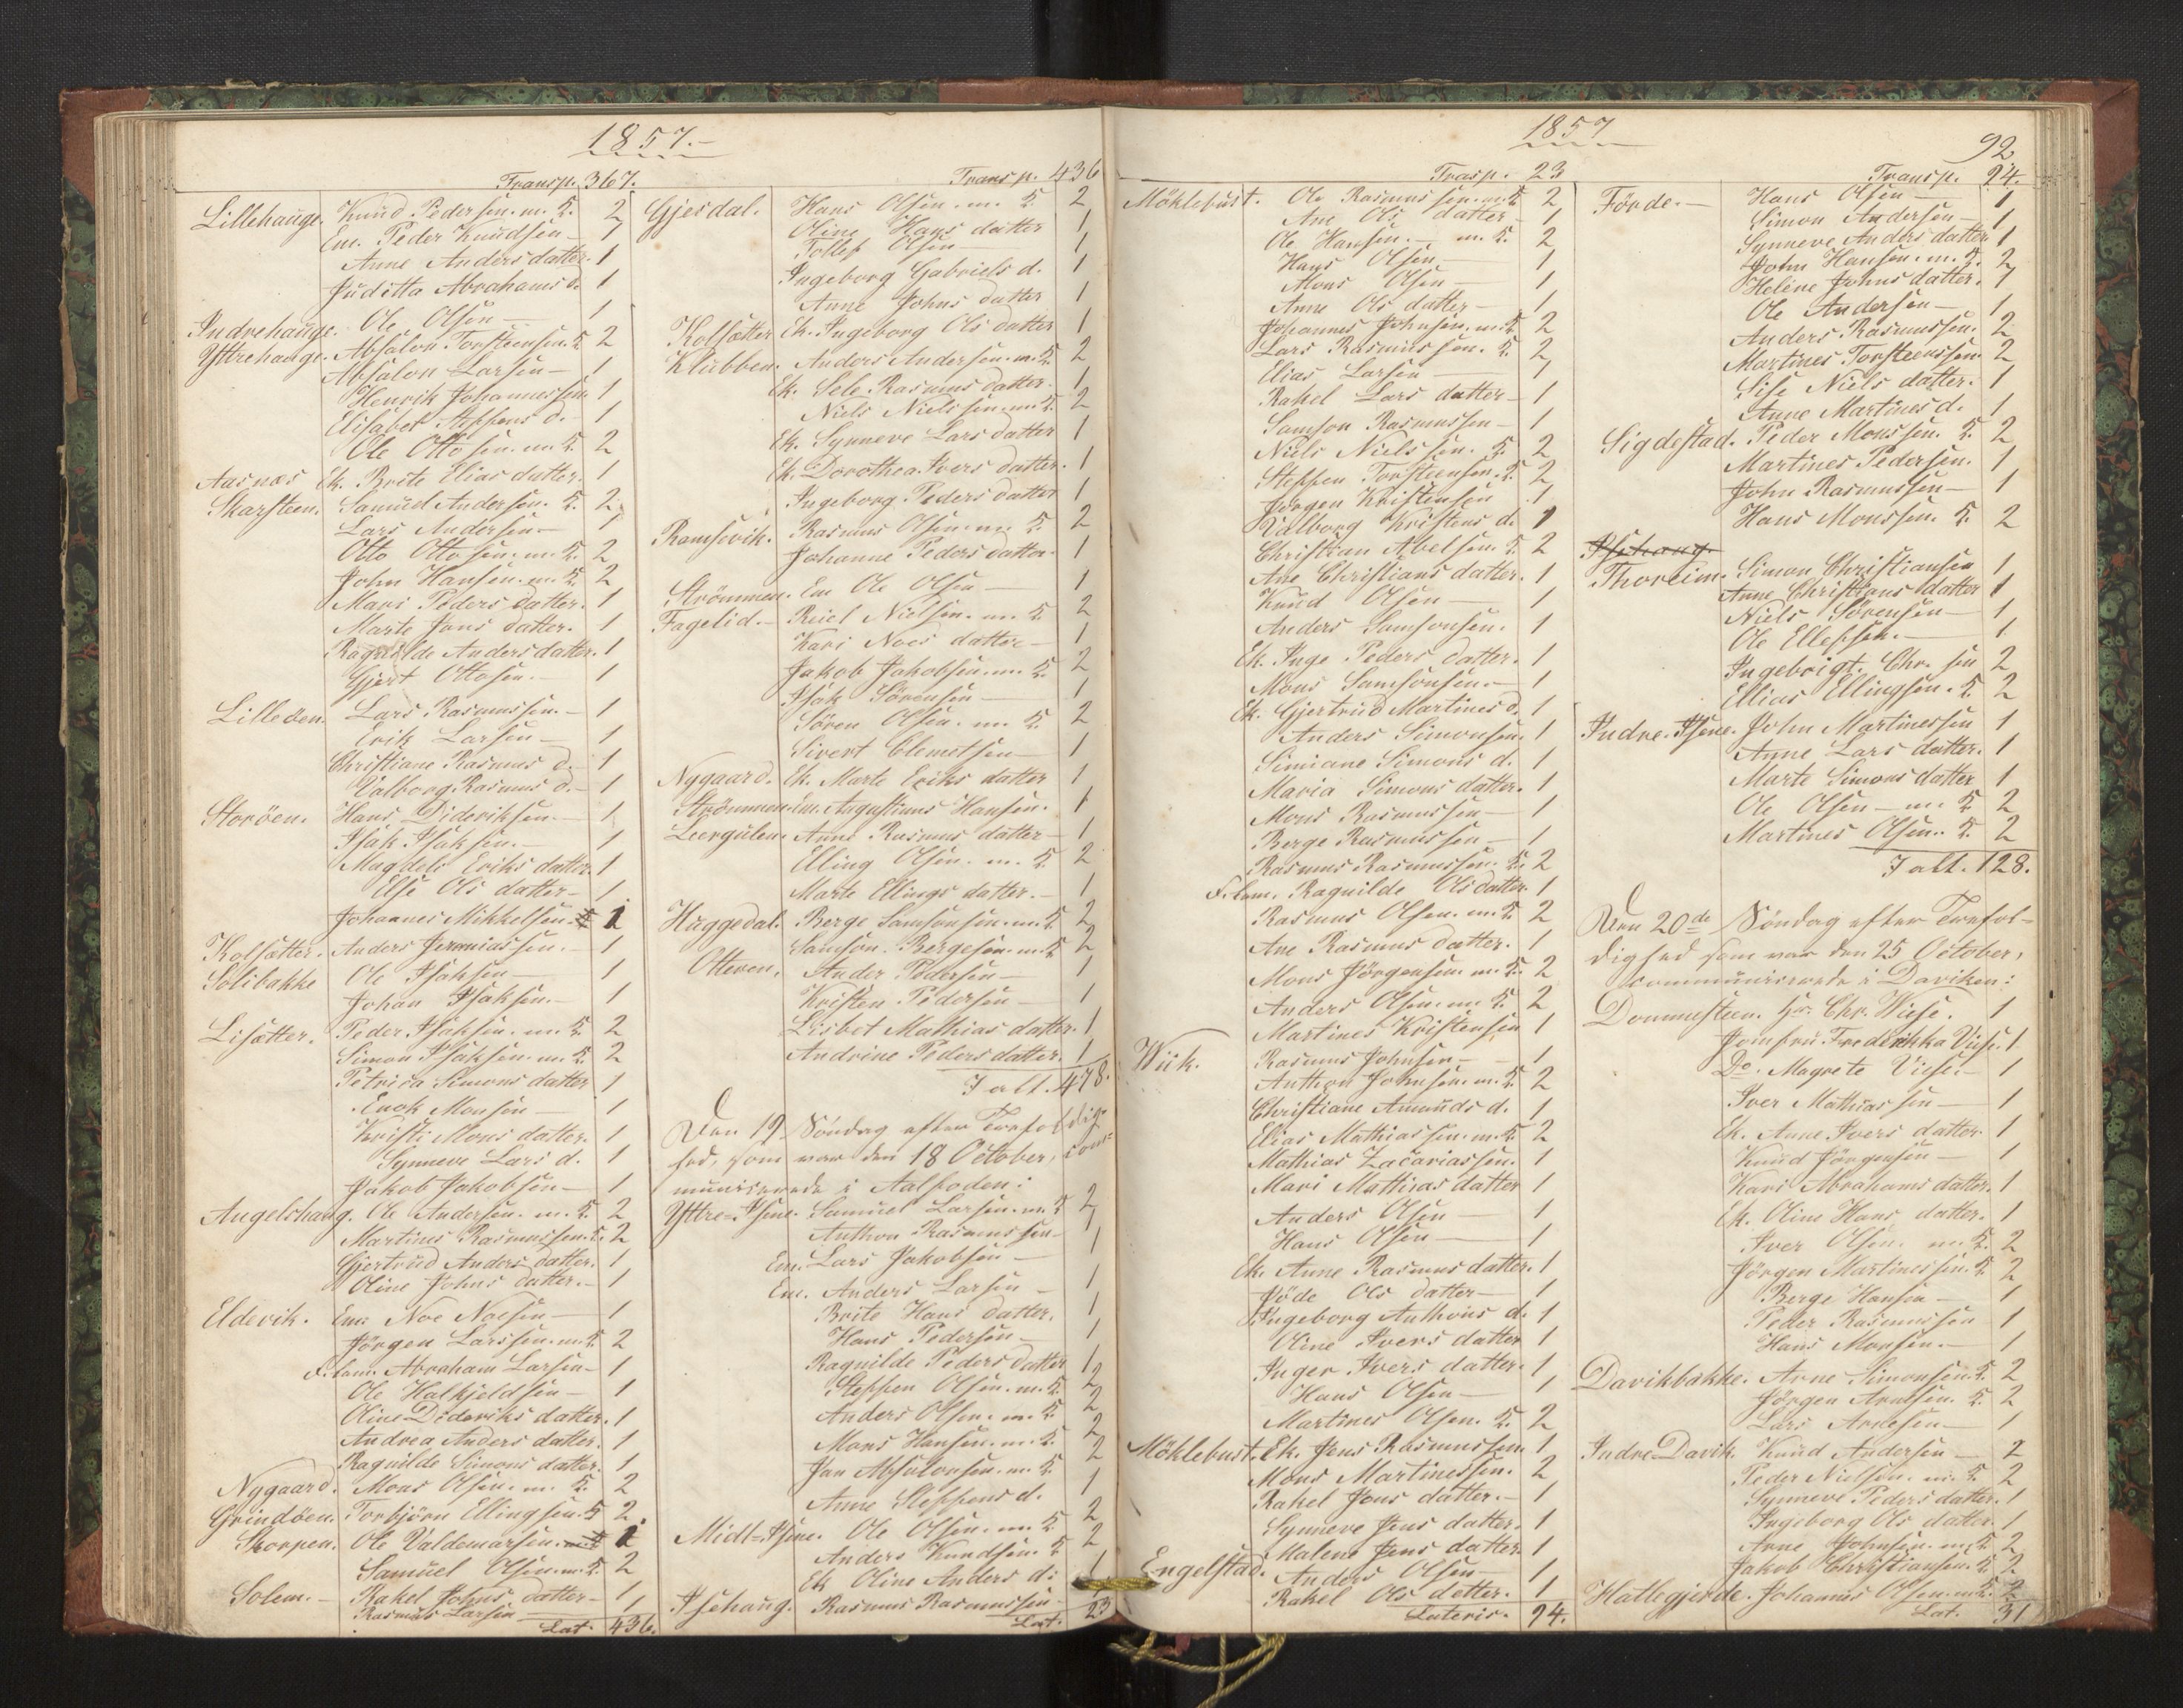 1857.-
Transp. 367.
Lillehauge. Knud Pedersen. m. K. 2
Em. Peder Knudsen - 1
Anne Anders datter. 1
Juditta Abrahams d. 1
Indrehauge. Ole Olsen - 1
Yttrehauge. Absalon Torsteensen. K 2
Absalon Larsen - 1
Henrik Johannessen 1
Elisabet Steffens d. - 1
Ole Ottosen. m. K. 2
Aasnæs Ek. Brite Elias datter. 1
Skarsteen. Samuel Andersen. K. 2
Lars Andersen - 1
Otto Ottosen. m. K. 2
John Hansen. m. K. 2
Mari Peders datter. 1
Marte Jans datter. 1
Ragnilde Anders datter. 1
Gjert Ottosen. - 1
Lilleöen. Lars Rasmussen. - 1
Erik Larsen - 1
Christiane Rasmus d. - 1
Valborg Rasmus d. - 1
Storöen. Hans Dideriksen. - 1
Isak Isaksen. - 1
Magdeli Eriks datter. 1
Else Ols datter - 1
Johannes Mikkelsen. 1
Kolsætter. Anders Jeremiassen. - 1
Solibakke Ole Isaksen - 1
Johan Isaksen. - 1
Lisætter. Peder Isaksen. m. K 2
Simon Isaksen. m. K. 2
Petrica Simons datter 1
Enok Monsen - 1
Kristi Mons datter. 1
Synneve Lars d. 1
Jakob Jakobsen - 1
Angelshaug. Ole Andersen. m. K. 2
Martines Rasmussen. K. 2
Gjertrud Anders datter. 1
Oline Johns datter. - 1
Eldevik. Em. Noe Noesen - 1
Jörgen Larssen. m. K 2
F. lam. Abraham Larsen - 1
Ole Halkjeldsen - 1
Oline Dideriks datter. 1
Andrea Anders datter. 1
Ragnilde Simons datter. 1
Nygaard. Mons Olsen. m. K. 2
Grindöen. Torbjörn Ellingsen. K 2
Skorpen. Ole Valdemarsen. 1
Samuel Olsen. m. K. 2
Solem. - Rakel Johns datter - 1
Rasmus Larsen 1
Lat. 436.
Transp. 436
Gjesdal. Hans Olsen. m. K 2
Oline Hans datter 1
Tollef Olsen - 1
Ingeborg Gabriels d. 1
Anne Johns datter 1
Kolsætter Ek. Ingeborg Ols datter 1
Klubben. Anders Andersen. m. K. 2
Ek. Sele Rasmus datter. 1
Niels Nielssen. m. K. 2
Ek. Synneve Lars datter 1
Ek. Dorothea Ivers datter. 1
Ingeborg Peders datter 1
Ramsevik. Rasmus Olsen. m. K. 2
Johanne Peders datter 1
Strömmen. Em Ole Olsen - 1
Fagelid. - Reiel Nielsen. m. K. 2
Kari Noes datter - 1
Jakob Jakobsen. m. K. 2
Isak Sörensen - 1
Sören Olsen. m. K. 2
Sivert Clemetsen - 1
Nygaard. Ek. Marte Eriks datter 1
Strömmen. Em. Augustinus Hansen. 1
Leergulen. Anne Rasmus datter - 1
Elling Olsen. m. K. 2
Marte Ellings datter. - 1
Huggedal. Berge Samsonsen. m. K. 2
Samson. Bergesen. m. K 2
Otteren. Ander Pedersen - 1
Kristen Pedersen - 1
Lisbet Mathias datter. 1
Andrine Peders datter. 1
I alt. 478.
Den 19 Söndag efter Trefoldig-
hed, som var den 18 October, com-
municerede i Aalfoden:
Yttre-Isene. Samuel Larsen. m. K 2
Anthon Rasmussen - 1
Em. Lars Jakobsen - 1
Em. Anders Larsen - 1
Brite Hans datter. 1
Hans Pedersen - 1
Ragnilde Peders datter 1
Steffen Olsen. m. K. 2
Anders Olsen. m. K. 2
Mons Hansen. m. K. 2
Jan Absalonsen. m. K. 2
Anne Steffens d. 1
Midt-Isene. Ole Olsen. m. K. 2
Anders Knudsen. K 2
Ek Oline Anders d: 1
Isehaug. Rasmus Rasmussen - 1
Lat. 23
1857
92
Trasp. 23
Möklebust. Ole Rasmussen. m. K 2
Ane Ols datter - 1
Ole Hansen. - m. K. 2
Hans Olsen - 1
Mons Olsen - 1
Anne Ols datter - 1
Johannes Johnsen. m. K. 2
Lars Rasmussen. K. 2
Elias Larsen - 1
Rakel Lars datter - 1
Samson Rasmussen - 1
Niels Nielssen. K. 2
Steffen Torsteensen. K. 2
Jörgen Kristensen 1
Valborg Kristens d. 1
Christian Abelsen. K. 2
Ane Christians datter. 1
Knud Olsen - 1
Anders Samsonsen. 1
Ek. Inge Peders datter. 1
Mons Samsonsen - 1
Ek. Gjertrud Martines d. 1
Anders Simonsen. 1
Simiane Simons d. 1
Maria Simons datter. 1
Mons Rasmussen - 1
Berge Rasmussen - 1
Rasmus Rasmussen. K. 2
F. lam. Ragnilde Ols datter. 1
Rasmus Olsen. m. K 2
Ane Rasmus datter. 1
Mons Jörgensen m. K. 2
Anders Olsen. m. K. 2
Martines Kristensen 1
Wiik. Rasmus Johnsen - 1
Anthon Johnsen. m. K. 2
Christiane Amunds d. 1
Elias Mathiassen. m. K. 2
Mathias Zacariassen. 1
Mari Mathias datter 1
Anders Olsen - 1
Hans Olsen - 1
Ek. Anne Rasmus datter. 1
Jöde Ols datter - 1
Ingeborg Anthons d. 1
Oline Ivers datter 1
Inger Ivers datter. 1
Hans Olsen - 1
Martines Olsen. K. 2
Möklebust. Ek. Jens Rasmussen 1
Mons Martinessen. 2
Rakel Jens datter. - 1
Synneve Jens datter. 1
Malene Jens datter. 1
Engelstad. Anders Olsen 1
Rakel Ols datter. 1
Lateris. 94.
Transp. 94.
Förde. - Hans Olsen - 1
Simon Andersen - 1
Synneve Anders datter. 1
John Hansen. m. K. 2
Helene Johns datter. 1
Ole Andersen - 1
Anders Rasmussen. 2
Martines Torsteenssen. 2
Sise Niels datter. 1
Anne Martines d. 1
Sigdestad. Peder Monssen. K. 2
Martines Pedersen. 1
John Rasmussen - 1
Hans Monssen. K. 2
Isehaug.
Thoreim. Simon Christiansen 1
Anne Christians datter 1
Niels Sörensen - 1
Ole Ellefsen. - 1
Ingebrigt. Chr. sen 2
Ellias Ellingsen. K. 2
Indre. Isene. John Martinessen 1
Anne Lars datter. 1
Marte Simons datter 1
Ole Olsen - m. K 2
Martines Olsen. K. 2
I alt. 128.
Den 20de Söndag efter Trefol-
dighed som var den 25 October,
communicerede i Daviken:
Dommesteen. Hr. Chr. Wiese. 1
Jomfru Fredrikka Viese. 1
Do. Magrete Viese. - 1
Iver Mathiassen - 1
Ek. Anne Ivers datter. 1
Knud Jörgensen - 1
Kari Abrahams datter. 1
Ek. Oline Hans datter. 1
Iver Olsen. m. K. 2
Jörgen Martinessen. K. 2
Berge Hansen - 1
Peder Rasmussen 1
Hans Monsen. - 1
Davikbakke. Arne Simonsen. K. 2
Jörgen Arnesen. K. 2
Lars Arnesen - 1
Indre-Davik. Knud Andersen - 2
Peder Nielsen. m. K. 2
Synneve Peders datter. 1
Ingeborg Ols datter. 1
Arne Johnsen. m. K 2
Jakob Christiansen. K. 2
Hatlegjerde. Johannes Olsen. m. K. 2
Lat. 31